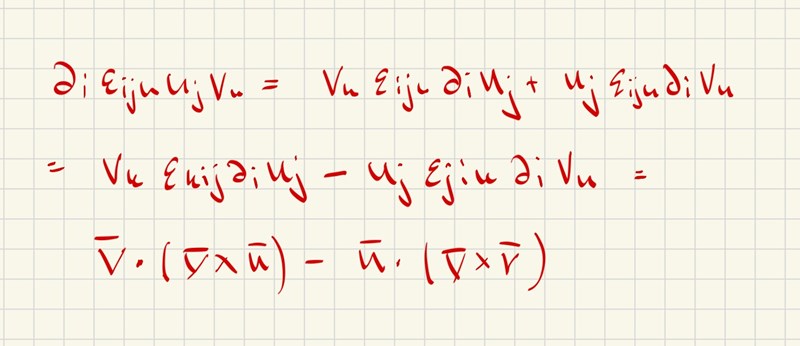 ∂ᵢ εᵢⱼₖ uⱼ vₖ = vₖ εᵢⱼₖ ∂ᵢ uⱼ + uⱼ εᵢⱼₖ ∂ᵢ vₖ
= vₖ εₖᵢⱼ ∂ᵢ uⱼ − uⱼ εⱼᵢₖ ∂ᵢ vₖ =
v̄ · (∇̄ × ū) − ū · (∇̄ × v̄)